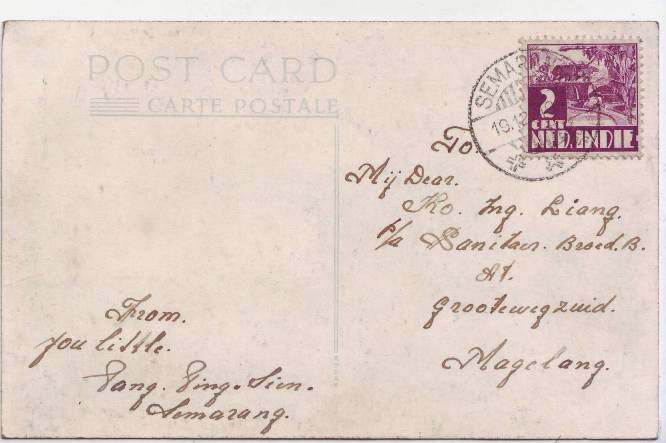 POST CARD
CARTE POSTALE
SEMARANG
19.12
2
CENT
NED. INDIE
To.
Mij Dear.
Ko. Ing. Liang.
P/a Sanitaer. Broed. B.
At.
Grootewegzuid.
Magelang.
From.
you little.
Tang. Ping. Sien.
Semarang.